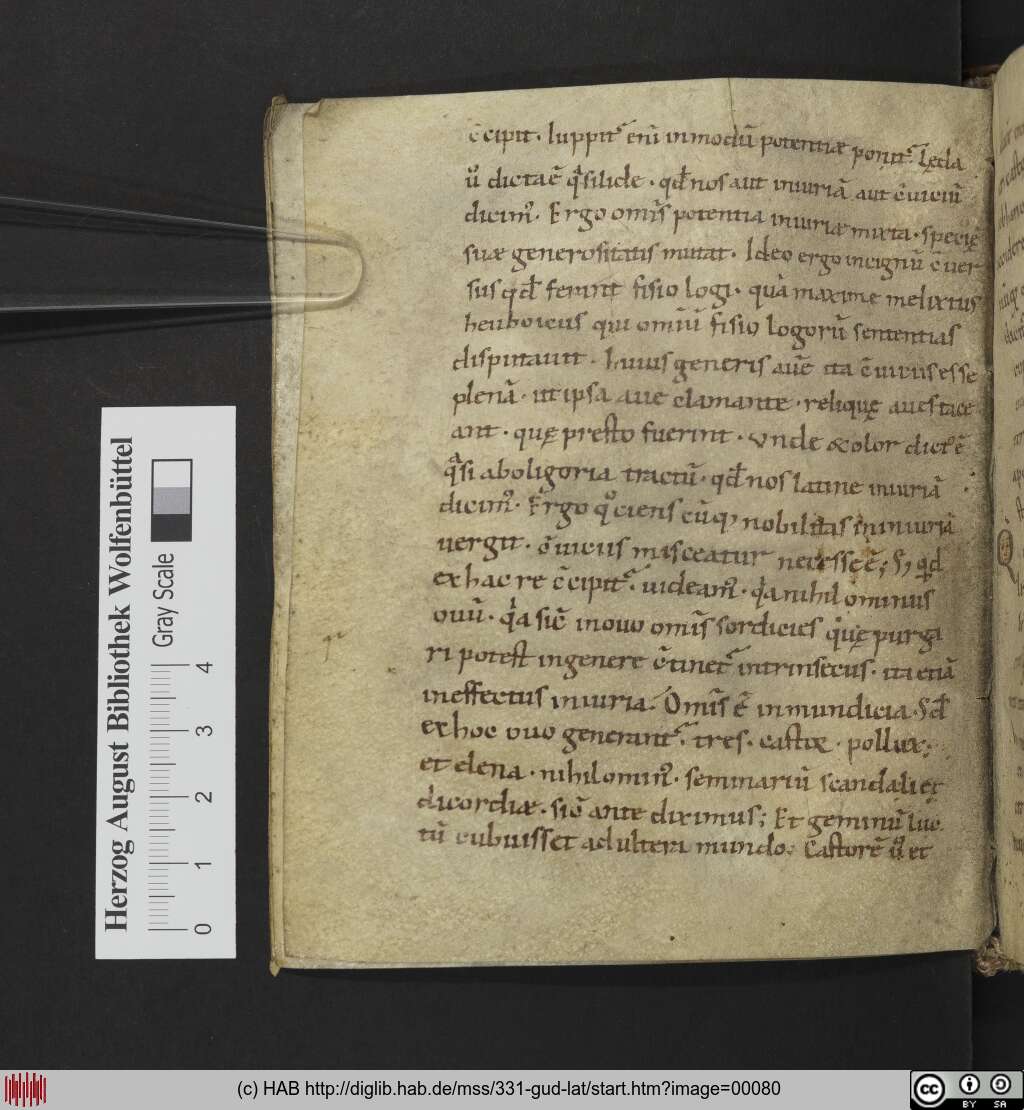 c̄cipit. Iuppit͛ eni᷒ in modū potentiæ ponit͛. Lęda
ū dicta ē q̊si lide. qđ nos aut iniuriā aut c̄uiciū
dicim᷒. Ergo omīs potentia iniuriæ mixta. speciē
suæ generositatis mutat. Ideo ergo incignū c̄uer
sus qđ ferint fisio logi. quā maxime melixius
heuboicus qui omniū fisio logorū sententias
disputauit. huius generis auē ita c̄uiciis esse
plenā. ut ipsa aue clamante. reliquę aues tace
ant. quę presto fuerint. Vnde & olor dict᷒ ē
q̊si aboligoria tractū. qđ nos latine iniuriā
dicim᷒. Ergo qͦciens cūq; nobilitas in iniuriā
uergit. c̄uiciis misceatur necesse ē; S; qd
ex hac re c̄cipit͛. uideam᷒. q̊a nihil ominus
ouū. q̊a sic̄ in ouo omīs sordicies quę purga
ri potest in genere c̄tinet͛ intrinsecus. ita etiā
in effectus iniuria. Omīs ē inmundicia. Sđ
ex hoc ouo generant͛. tres. castor. pollux.
et elena. nihilomin᷒. seminariū scandali et
dicordiæ. sic̄ ante diximus; Et geminū luc
tū cubuisset adulteri mundo. Castorē ū et
Herzog August Bibliothek Wolfenbüttel
Gray Scale
0 1 2 3 4
(c) HAB http://diglib.hab.de/mss/331-gud-lat/start.htm?image=00080
cc BY SA